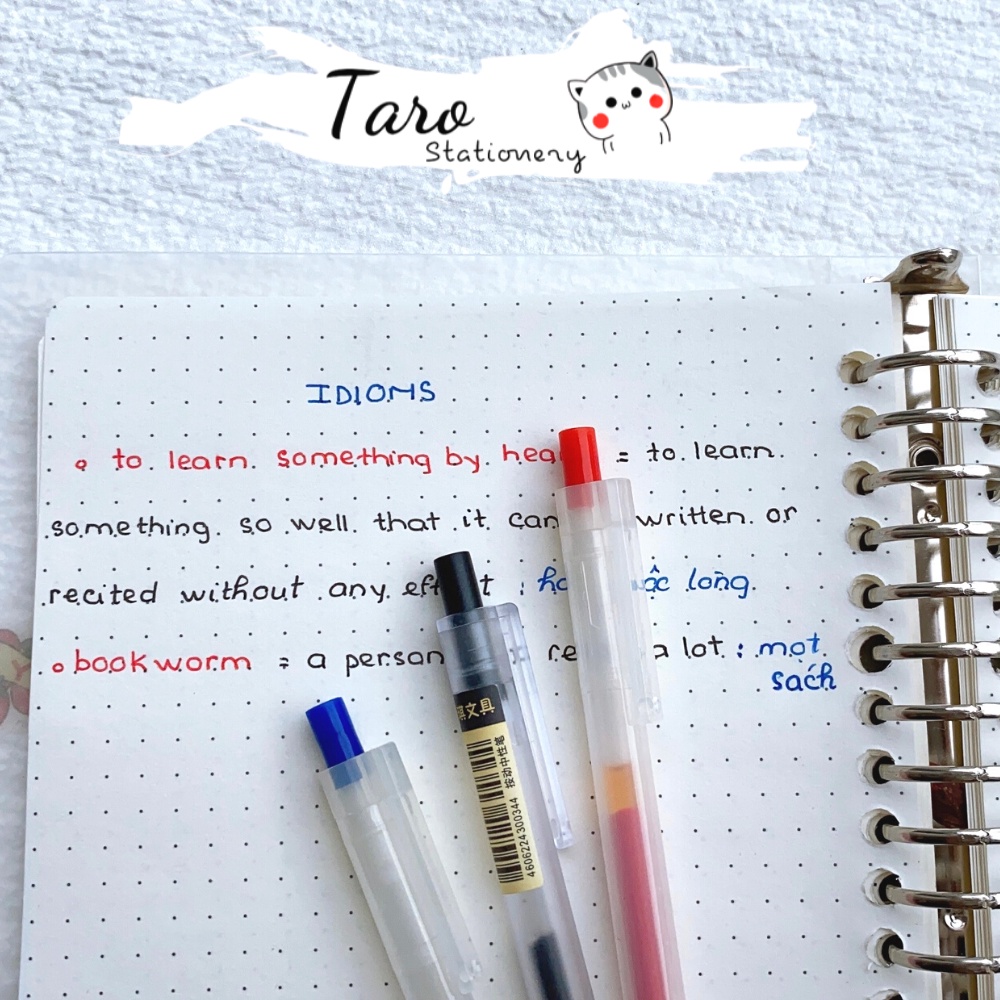 Taro
Stationery
IDIOMS
to learn something by hea = to learn
something so well that it can written or
recited without any eff t : ho ộc lòng.
bookworm = a person re a lot : mọt
sách
文具
按动中性笔
4606224300344